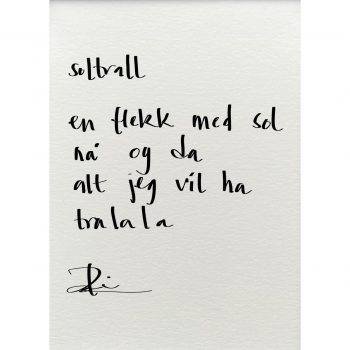 soltrall
en flekk med sol
nå og da
alt jeg vil ha
tralala